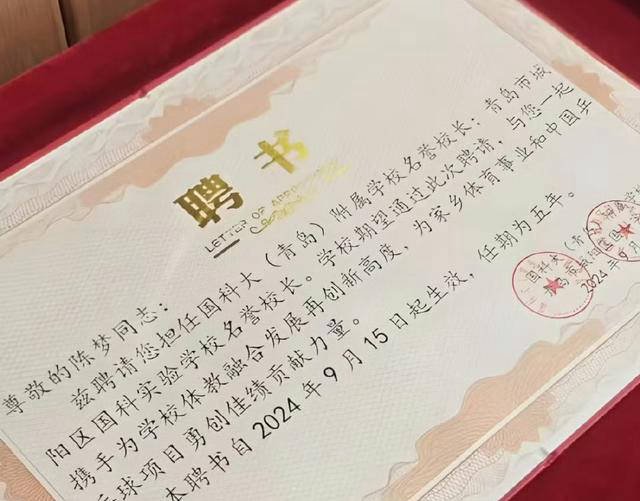 聘书
LETTER OF APPOINTMENT
尊敬的陈梦同志：
兹聘请您担任国科大（青岛）附属学校名誉校长；青岛市城
阳区国科实验学校名誉校长。学校期望通过此次聘请，与您一起
携手为学校体教融合发展再创新高度，为家乡体育事业和中国乒
乓球项目勇创佳绩贡献力量。
本聘书自2024年9月15日起生效，任期为五年。
国科大（青
2024年9月